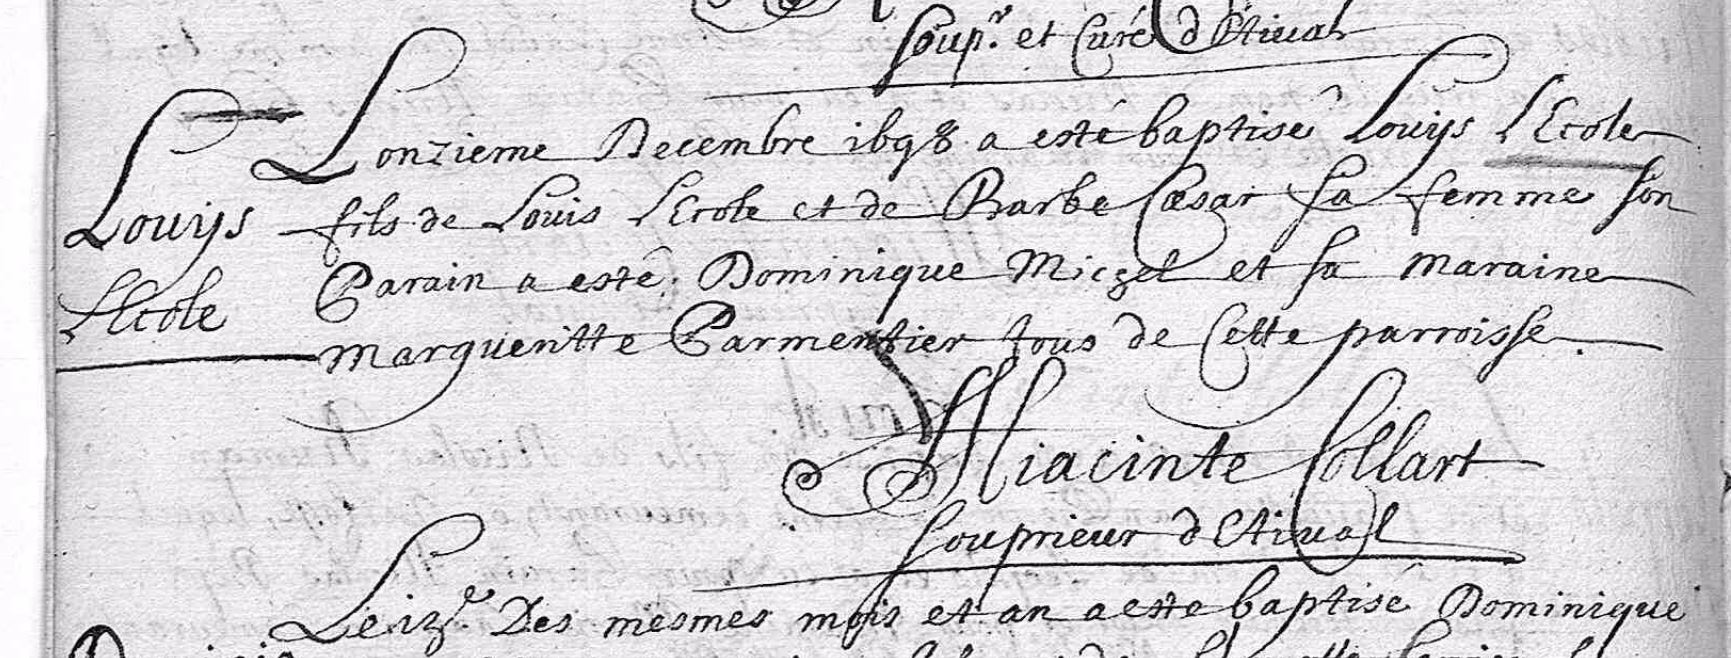 soup.r et Curé d'Etival
Lonzieme Decembre 1698 a esté baptisé Louijs LEcole
Louijs
fils de Louis LEcole et de Barbe Cæsar sa femme son
LEcole
Parain a esté Dominique Miczel et sa maraine
margueritte Parmentier tous de Cette parroisse.
Hiacinte Collart
souprieur d'Etival
Le 12.e Des mesmes mois et an a esté baptisé Dominique